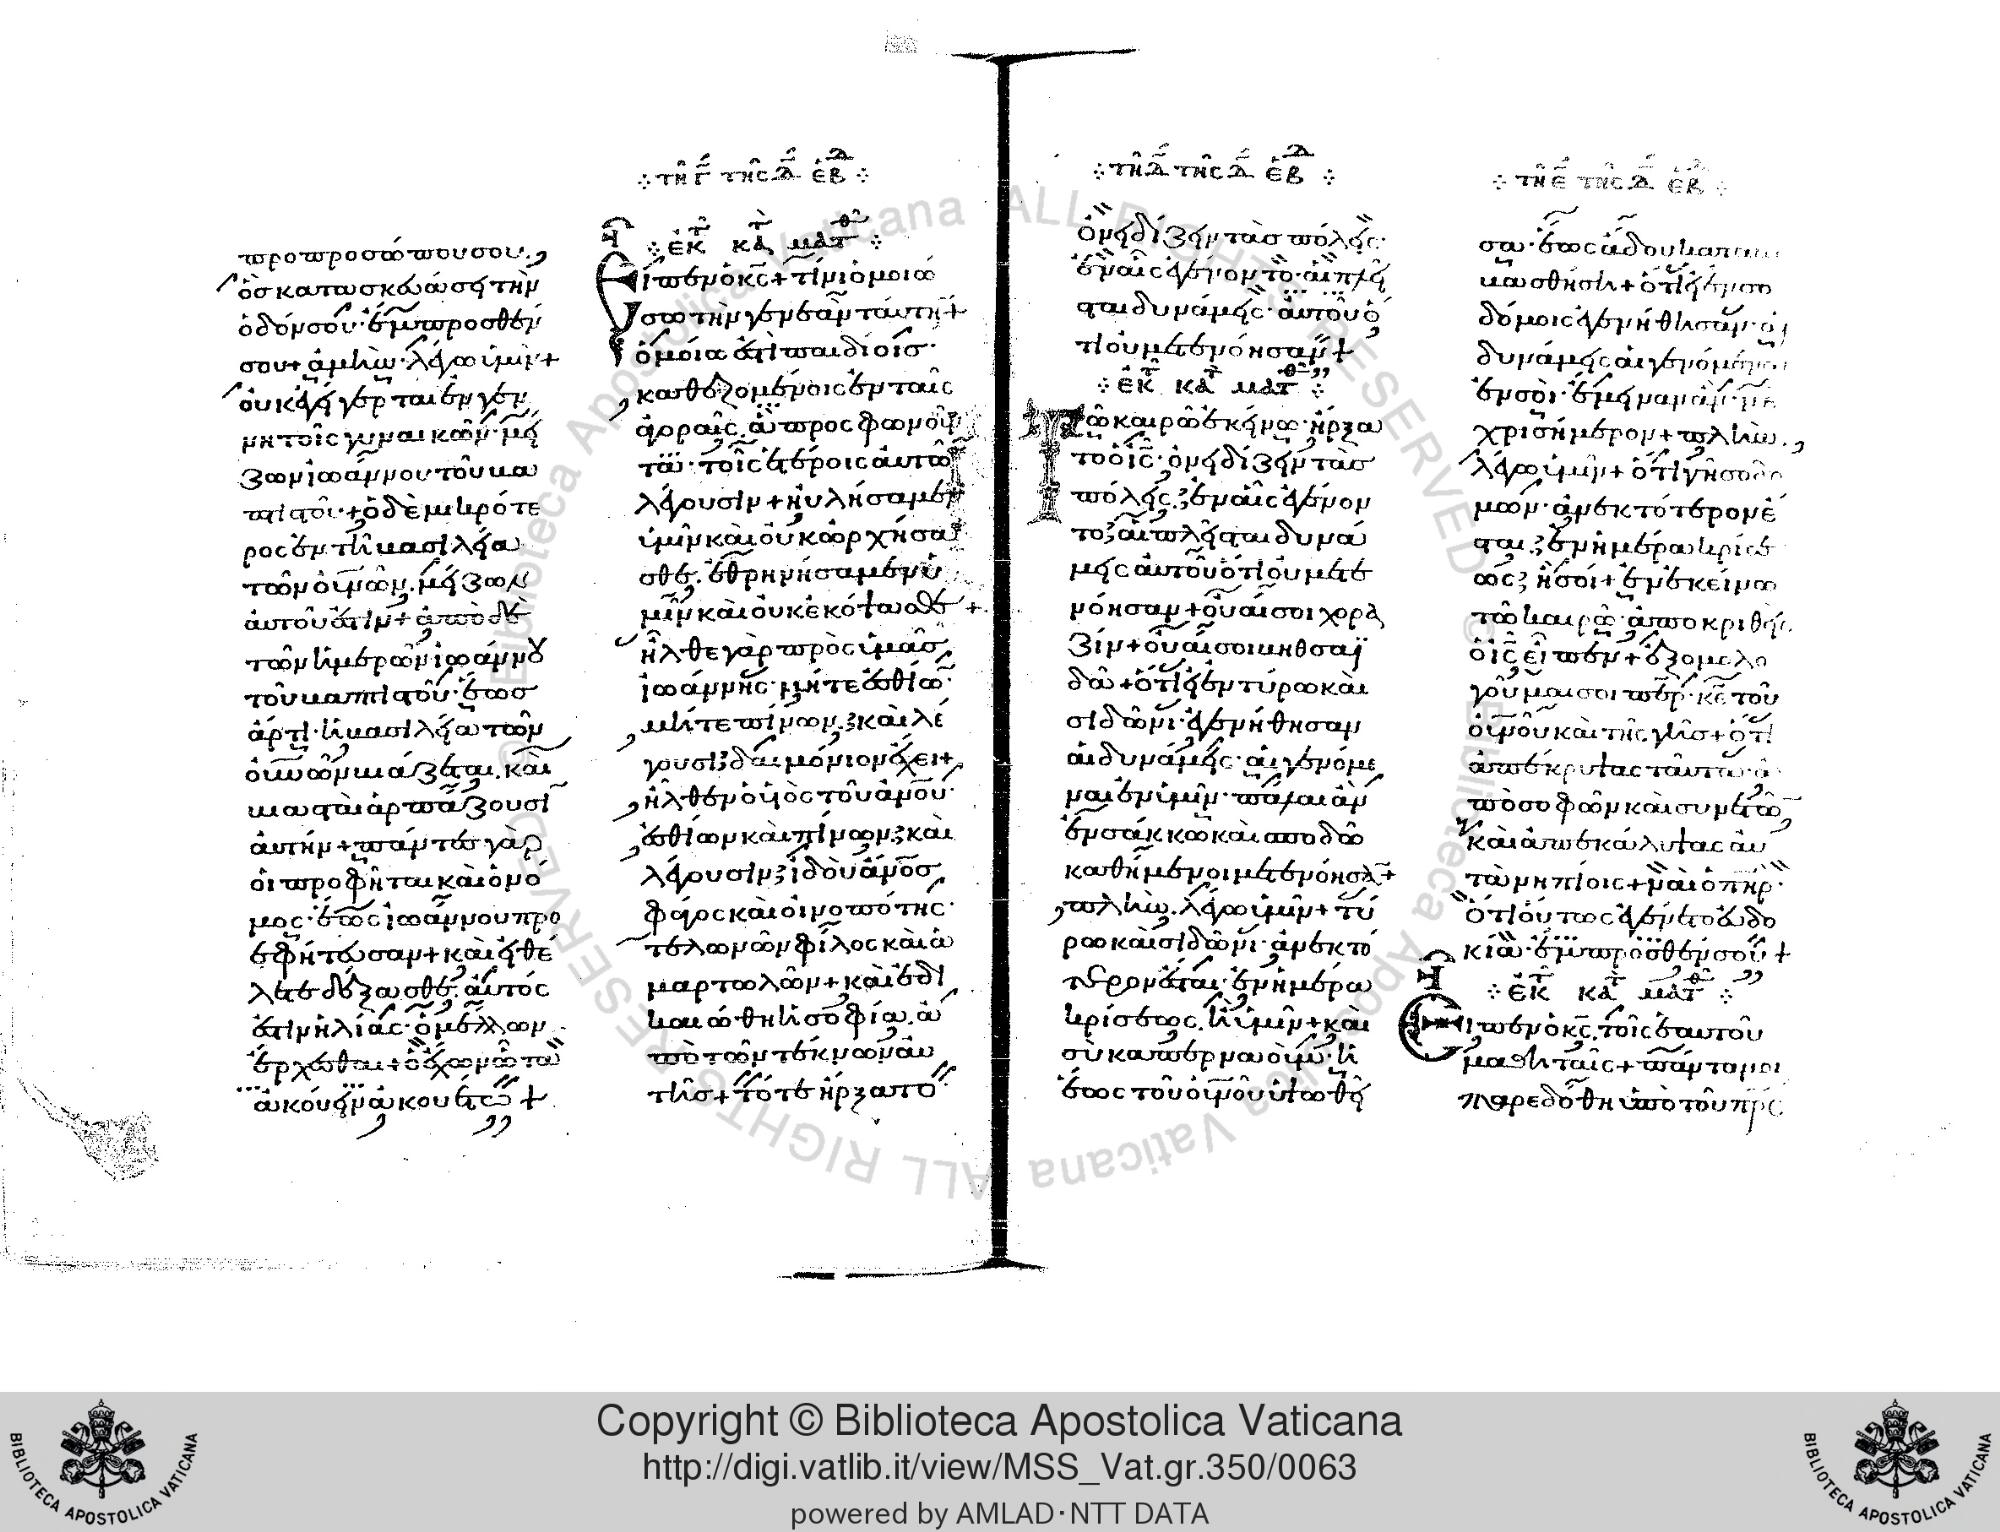 προπροσώπουσου,
ὃσκατασκευάσειτὴν
ὁδόνσου· ἔμπροσθέν
σου+ ἀμὴν· λέγω ὑμῖν+
οὐκ ἐγήγερται ἐν γεν
νητοῖς γυναικῶν· μεί
ζων ἰωάννου τοῦ βα
πτιστοῦ·+ ὁ δὲ μικρότε
ρος ἐν τῆ βασιλεία
τῶν οὐνῶν. μείζων
αὐτοῦ ἐστιν+ ἀπὸ δὲ
τῶν ἡμερῶν ἰωάννου
τοῦ βαπτιστοῦ· ἕως
ἄρτι· ἡ βασιλεία τῶν
οὐνῶν βιάζεται. καὶ
βιασταὶ ἁρπάζουσῑ
αὐτήν+ πάντες γὰρ
οἱ προφῆται καὶ ὁ νό
μος· ἕως ἰωάννου προ
εφήτευσαν+ καὶ εἰ θέ
λετε δέξασθε. αὐτός
ἐστιν ἠλίας· ὁ μέλλων
ἔρχεσθαι+ ὁ ἔχων ὦτα
ἀκούειν ἀκουέτω +
τῆ γ τῆς δ ἑβδ
ἐκ τ κατ ματθ
Εἶπεν ὁ κς+ τίνι ὁμοιώ
σω τὴν γενεὰν ταύτην+
ὁμοία ἐστὶ παιδίοις·
καθεζομένοις ἐν ταῖς
ἀγοραῖς. ἃ προσφωνοῦν
τα· τοῖς ἑτέροις αὐτῶν
λέγουσιν+ ηὐλήσαμεν
ὑμῖν καὶ οὐκ ὠρχήσα
σθε. ἐθρηνήσαμεν ὑ
μῖν καὶ οὐκ ἐκόψασθε+
ἦλθε γὰρ πρὸς ὑμᾶς
ἰωάννης· μήτε ἐσθίων·
μήτε πίνων. καὶ λέ
γουσι δαιμόνιον ἔχει+
ἦλθεν ὁ υἱὸς τοῦ ἀνου·
ἐσθίων καὶ πίνων. καὶ
λέγουσιν ἰδοὺ ἄνος
φάγος καὶ οἰνοπότης·
τελωνῶν φίλος καὶ ἁ
μαρτωλῶν+ καὶ ἐδι
καιώθη ἡ σοφία. ἀ
πὸ τῶν τέκνων αὐ
τῆς+ τότε ἤρξατο·
τῆ δ τῆς δ ἑβδ
ὀνειδίζειν τὰς πόλεις·
ἐν αἷς ἐγένοντο· αἱ πλεῖ
σται δυνάμεις· αὐτοῦ ὅ
τι οὐ μετενόησαν+
ἐκ τ κατ ματθ
Τῶ καιρῶ ἐκείνω· ἤρξα
το ὁ ις· ὀνειδίζειν τὰς
πόλεις. ἐν αἷς ἐγένον
το αἱ πλεῖσται δυνά
μεις αὐτοῦ ὅτι οὐ μετε
νόησαν+ οὐαί σοι χορα
ζίν+ οὐαί σοι βηθσαϊ
δά+ ὅτι εἰ ἐν τύρω καὶ
σιδῶνι· ἐγενήθησαν
αἱ δυνάμεις· αἱ γενόμε
ναι ἐν ὑμῖν· πάλαι ἂν
ἐν σάκκω καὶ σποδῶ
καθήμενοι μετενόησαν+
πλὴν. λέγω ὑμῖν+ τύ
ρω καὶ σιδῶνι· ἀνεκτό
τερον ἔσται· ἐν ἡμέρα
κρίσεως. ἢ ὑμῖν+ καὶ
σὺ καπερναούμ· ἡ
ἕως τοῦ οὐνοῦ ὑψωθεῖ
τῆ ε τῆς δ ἑβδ
σα· ἕως ἅδου καταβι
βασθήση+ ὅτι εἰ ἐν σο
δόμοις ἐγενήθησαν· αἱ
δυνάμεις αἱ γενόμεναι
ἐν σοὶ· ἔμειναν ἂν· μέ
χρι σήμερον+ πλὴν.
λέγω ὑμῖν+ ὅτι γῆ σοδό
μων· ἀνεκτότερον ἔ
σται. ἐν ἡμέρα κρίσε
ως ἢ σοί+ ἐν ἐκείνω
τῶ καιρῶ· ἀποκριθεὶς
ὁ ις εἶπεν+ ἐξομολο
γοῦμαι σοι περ· κε τοῦ
οὐνοῦ καὶ τῆς γῆς+ ὅτι
ἀπέκρυψας ταῦτα· ἀ
πὸ σοφῶν καὶ συνετῶν
καὶ ἀπεκάλυψας αὐ
τὰ νηπίοις+ ναὶ ὁ πηρ·
ὅτι οὕτως ἐγένετο εὐδο
κία· ἔμπροσθέν σου+
ἐκ τ κατ ματθ
Εἶπεν ὁ κς. τοῖς ἑαυτοῦ
μαθηταῖς+ πάντα μοι
παρεδόθη ὑπὸ τοῦ πρς
Copyright © Biblioteca Apostolica Vaticana
http://digi.vatlib.it/view/MSS_Vat.gr.350/0063
powered by AMLAD·NTT DATA
BIBLIOTECA APOSTOLICA VATICANA
BIBLIOTECA APOSTOLICA VATICANA
© Biblioteca Apostolica Vaticana ALL RIGHTS RESERVED
© Biblioteca Apostolica Vaticana ALL RIGHTS RESERVED